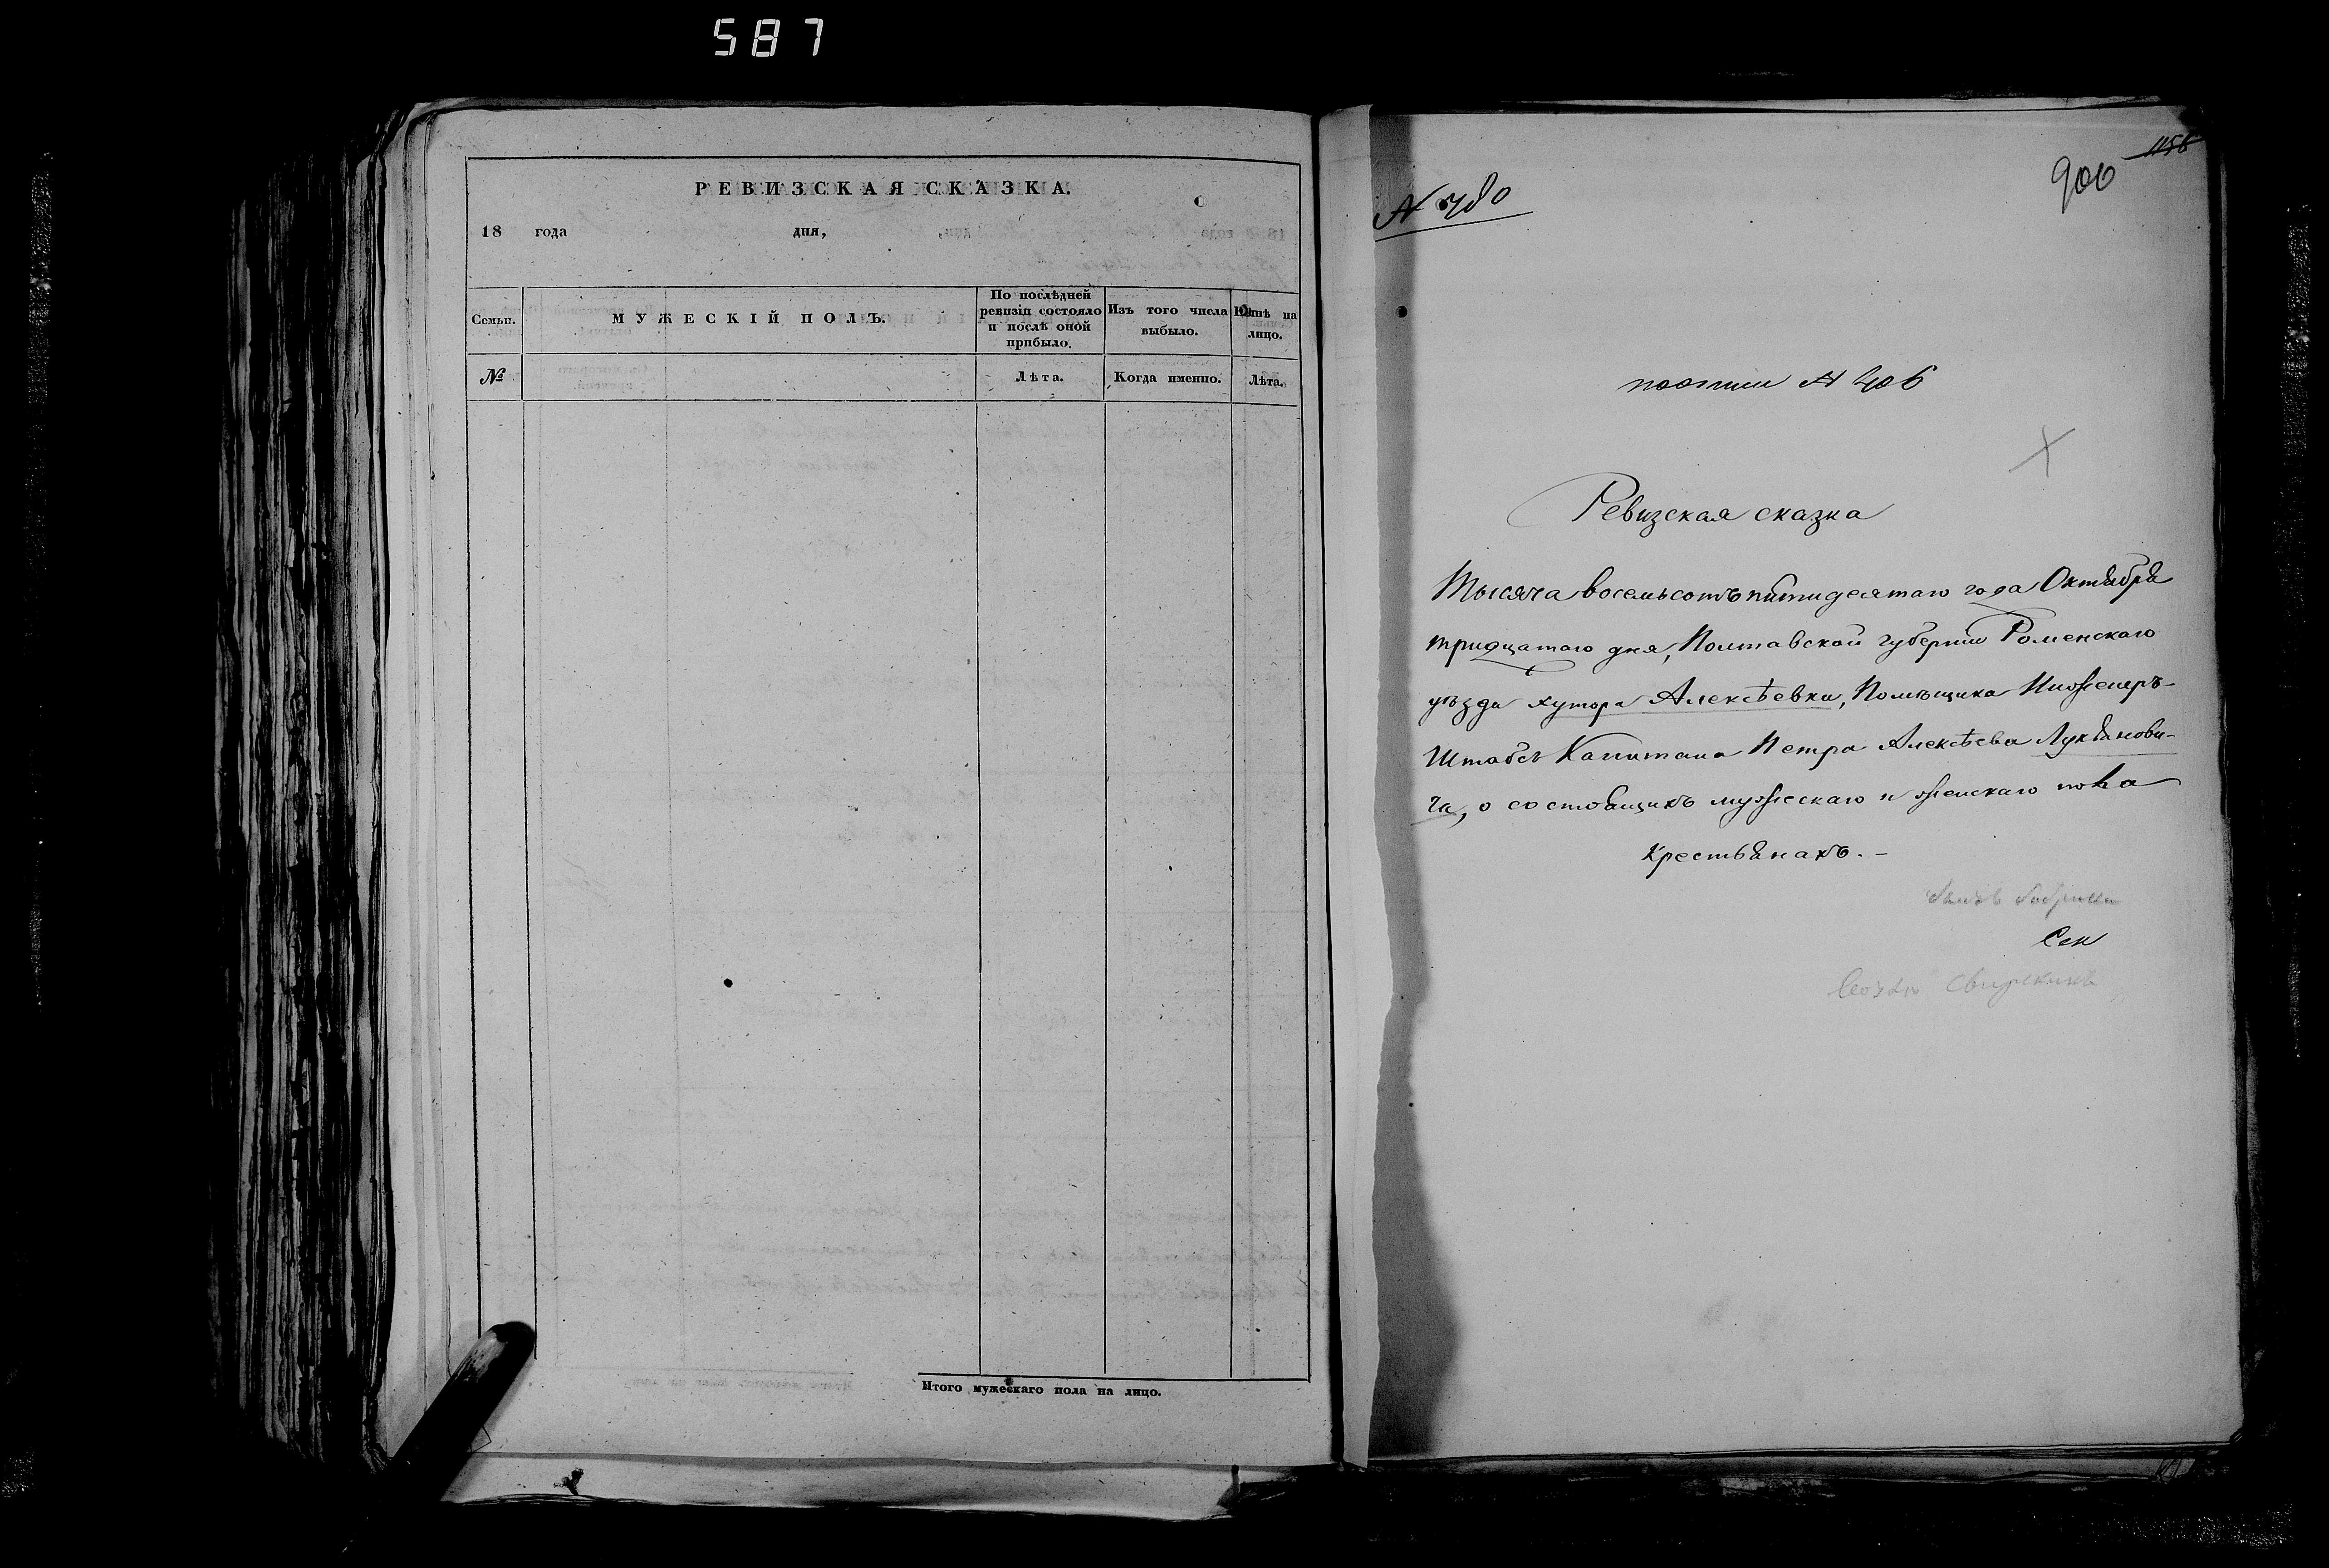 587
РЕВИЗСКАЯ СКАЗКА.
18 года дня,
Семьи.
МУЖЕСКІЙ ПОЛЪ.
По послѣдней ревизіи состояло и послѣ оной прибыло.
Изъ того числа выбыло.
Нынѣ на лицо.
№
Лѣта.
Когда именно.
Лѣта.
Итого мужескаго пола на лицо.
900
N 780
N 406
Ревизская сказка
Тысяча восемьсотъ пятидесятаго года Октября
тридцатаго дня, Полтавской губерніи Роменскаго
уѣзда хутора Алексѣевки, Помѣщика Инженеръ-
Штабсъ Капитана Петра Алексѣева Лукьянови-
ча, о состоящихъ мужескаго и женскаго пола
Крестьянахъ.-